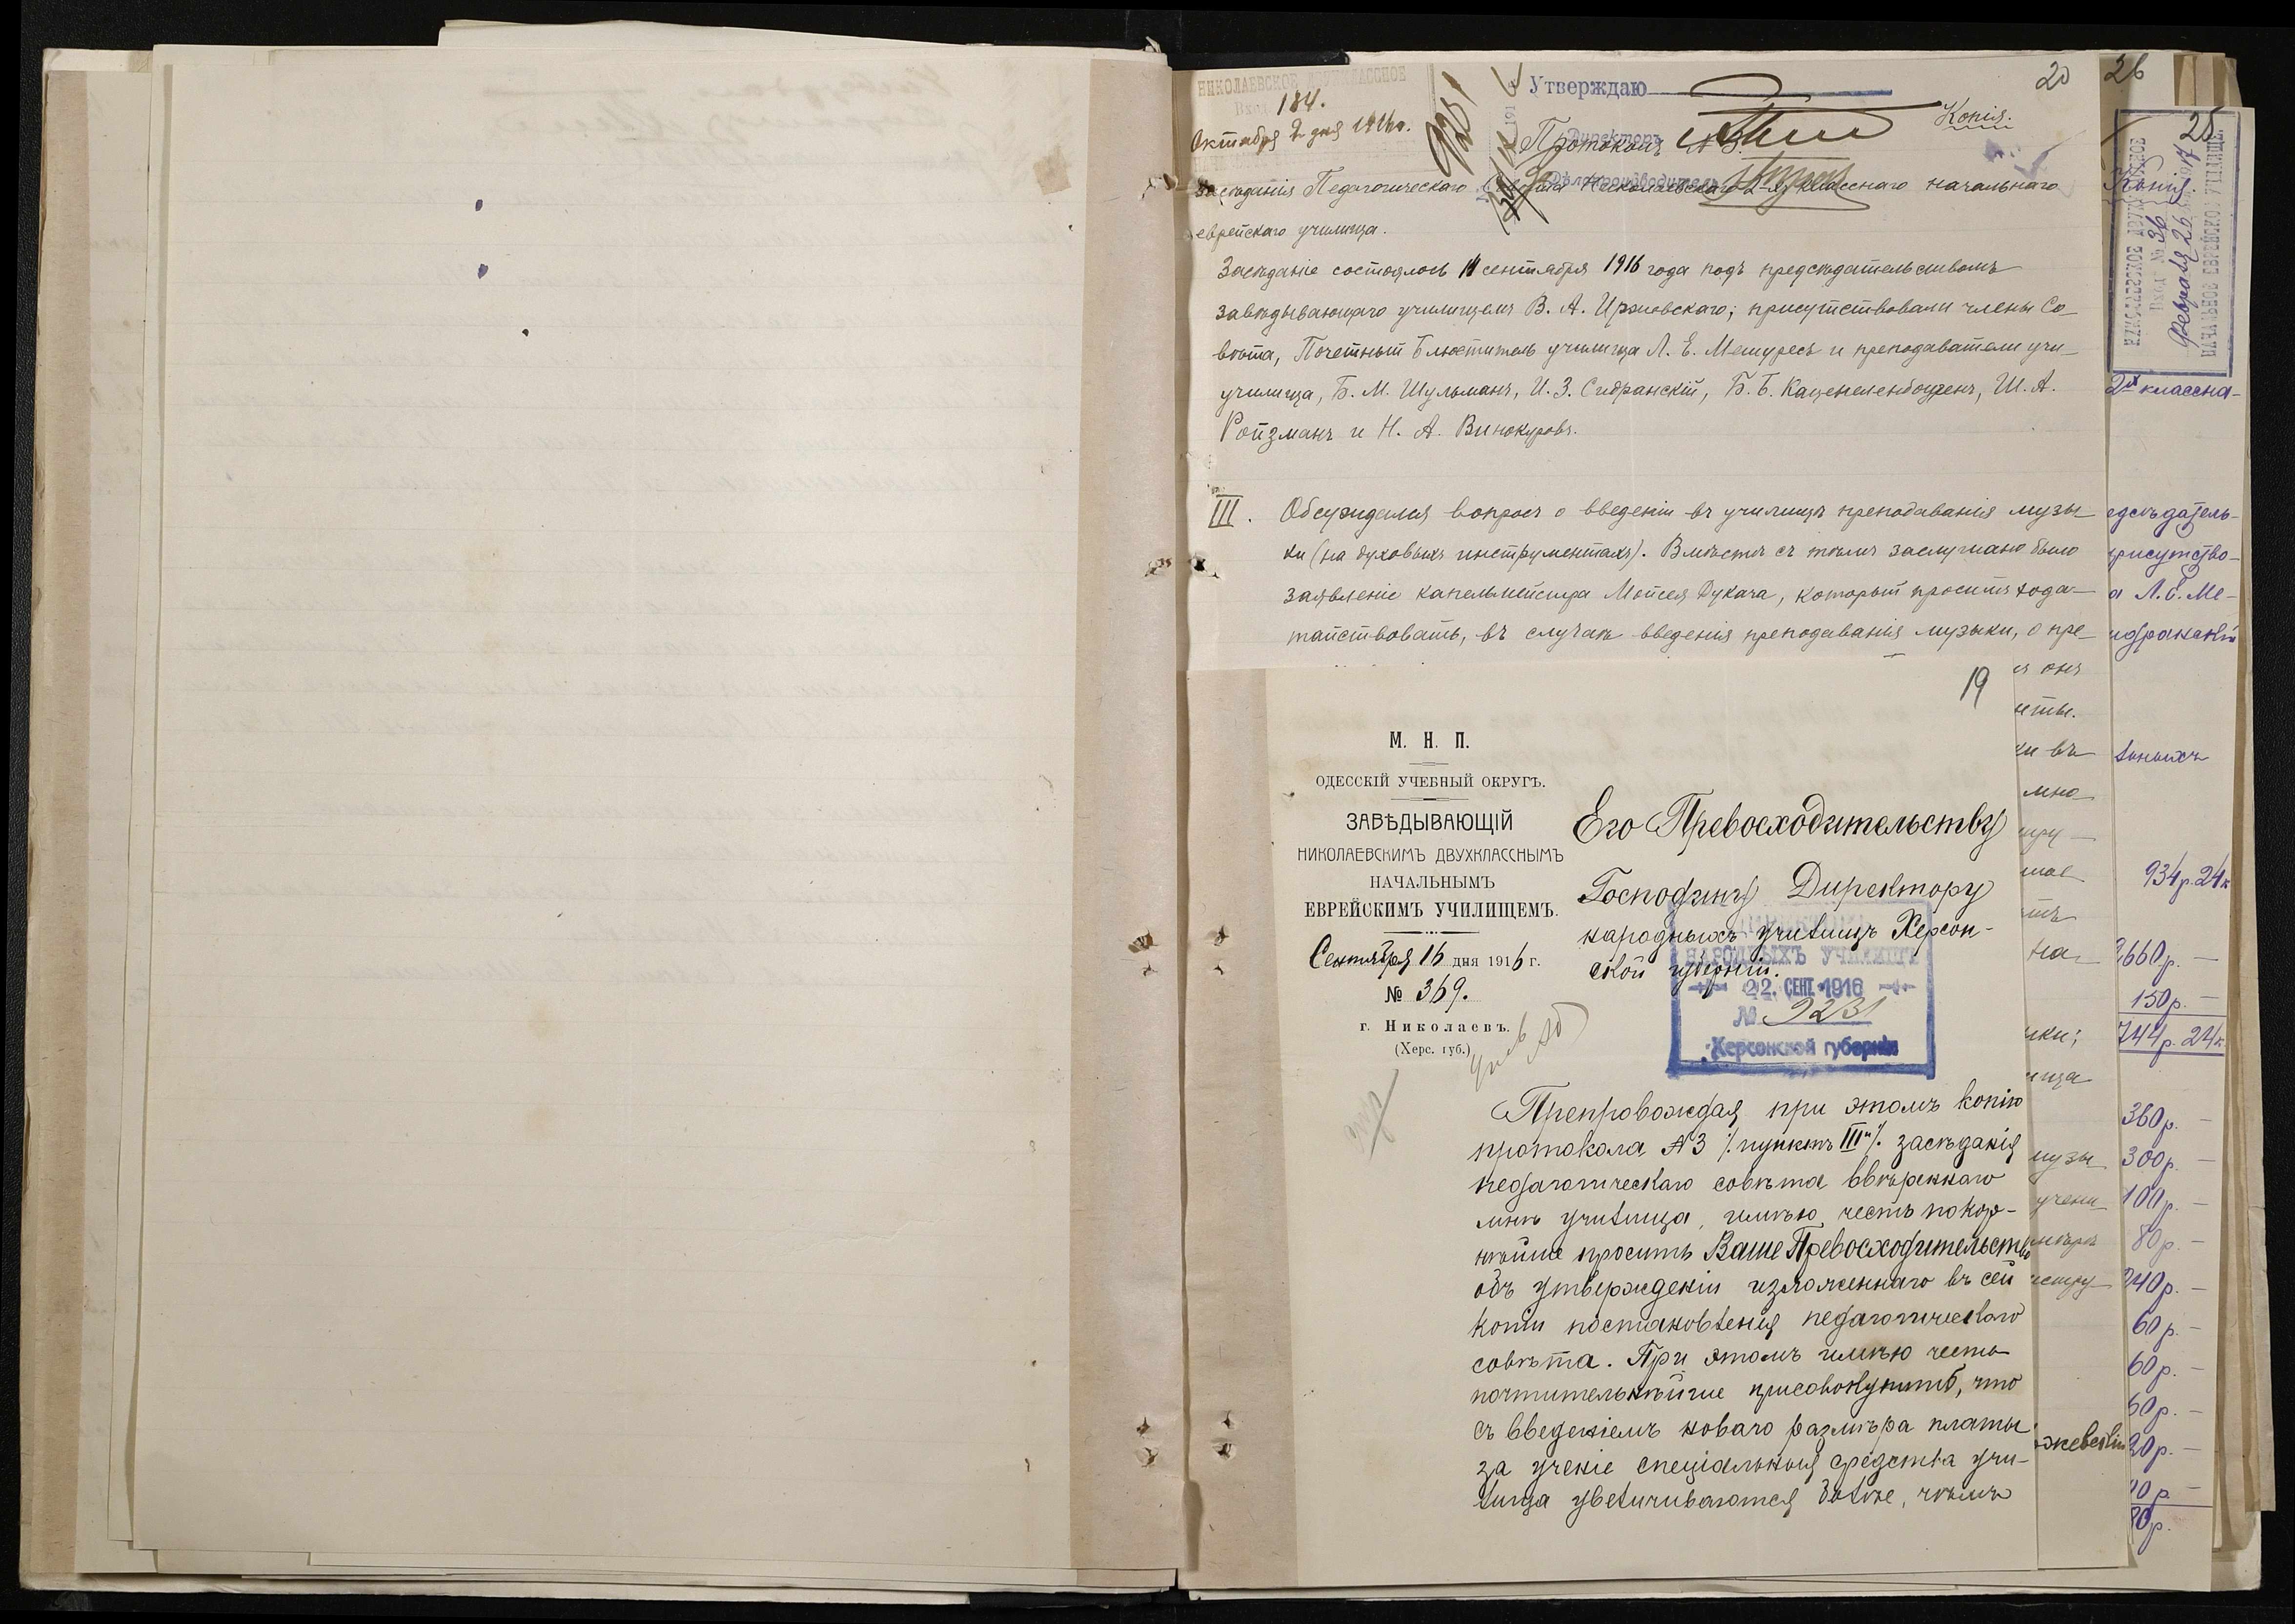 НИКОЛАЕВСКОЕ ДВУХКЛАССНОЕ
Вход. 184.
Октября 2 дня 1916 г.
Утверждаю
20
Копія.
Директоръ
Протоколъ №3
Дѣлопроизводитель
засѣданія Педагогическаго Совѣта Николаевскаго 2-хъ класснаго начальнаго
еврейскаго училища.
Засѣданіе состоялось 11 сентября 1916 года подъ предсѣдательствомъ
завѣдывающаго училищемъ В. А. Иржовскаго; присутствовали члены Со-
вѣта, Почетный Блюститель училища Л. Е. Мешуресъ и преподаватели учи-
училища, Б. М. Шульманъ, И. З. Сидранскій, Б. Б. Каценеленбогенъ, Ш. А.
Ройзманъ и Н. А. Винокуровъ.
III. Обсуждался вопросъ о введеніи въ училищѣ преподаванія музы-
ки (на духовыхъ инструментахъ). Вмѣстѣ съ тѣмъ заслушано было
заявленіе капельмейстера Мойсея Дукача, который проситъ хода-
тайствовать, въ случаѣ введенія преподаванія музыки, о пре-
19
М. Н. П.
ОДЕССКІЙ УЧЕБНЫЙ ОКРУГЪ.
ЗАВѢДЫВАЮЩІЙ
НИКОЛАЕВСКИМЪ ДВУХКЛАССНЫМЪ
НАЧАЛЬНЫМЪ
ЕВРЕЙСКИМЪ УЧИЛИЩЕМЪ.
Сентября 16 дня 1916 г.
№ 369.
г. Николаевъ.
(Херс. губ.)
Его Превосходительству
Господину Директору
народныхъ училищъ Херсон-
ской губерніи.
НАРОДНЫХЪ УЧИЛИЩЪ
22. СЕНТ. 1916
№ 9231
Херсонской губерніи
Препровождая при этомъ копію
протокола №3 /.пунктъ IIIй/. засѣданія
педагогическаго совѣта ввѣреннаго
мнѣ училища, имѣю честь покор-
нѣйше просить Ваше Превосходительство
объ утвержденіи изложеннаго въ сей
копіи постановленія педагогическаго
совѣта. При этомъ имѣю честь
почтительнѣйше присовокупить, что
съ введеніемъ новаго размѣра платы
за ученіе спеціальныя средства учи-
лища увеличиваются болѣе, чѣмъ
я онъ
ки въ
мно
на
ики;
ища
музы
учени
26
25
Копія.
НИКОЛАЕВСКОЕ ДВУХКЛАССНОЕ
Вход. № 36
Февраля 26 1917
НАЧАЛЬНОЕ ЕВРЕЙСКОЕ УЧИЛИЩЕ.
2хъ класснa-
едсѣдатель-
рисутство-
а Л. Е. Ме-
идранскій
934 р. 24 к
2660 р. —
150 р. —
744 р. 24 к.
360 р. —
300 р. —
100 р. —
80 р. —
240 р. —
60 р. —
60 р. —
60 р. —
20 р. —